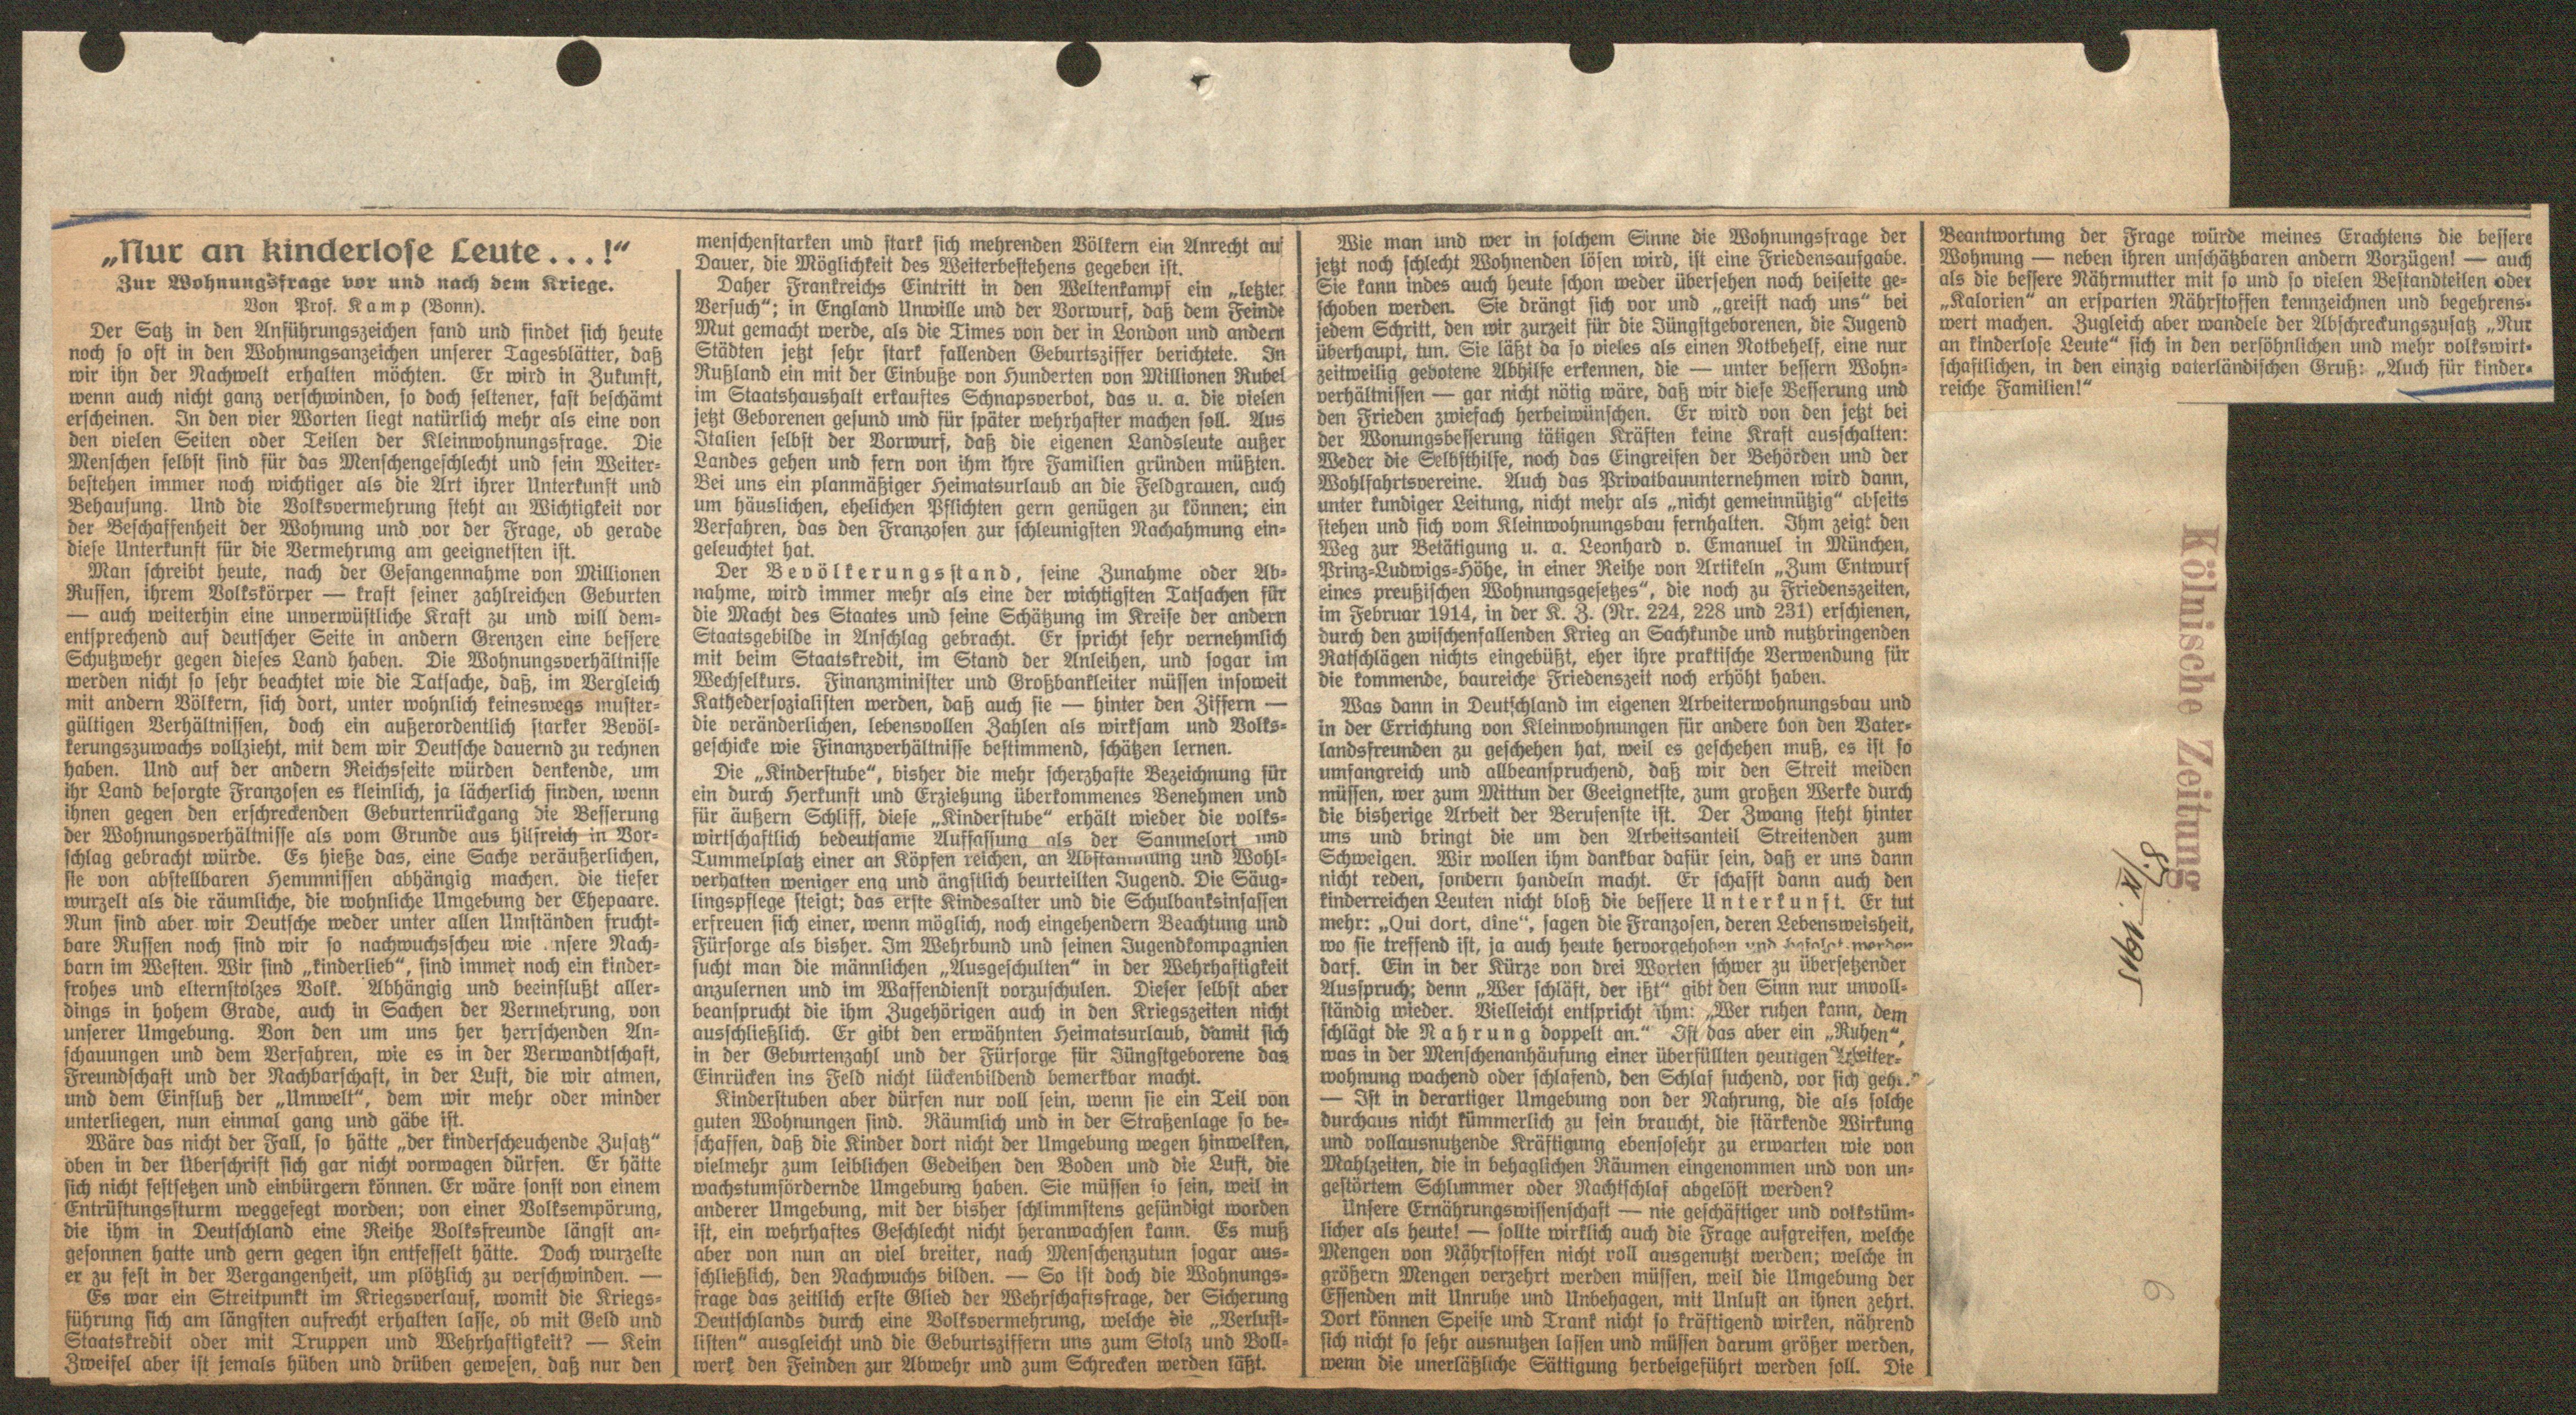 „Nur an kinderlose Leute...!“
Zur Wohnungsfrage vor und nach dem Kriege.
Von Prof. Kamp (Bonn).
Der Satz in den Anführungszeichen fand und findet sich heute
noch so oft in den Wohnungsanzeichen unserer Tagesblätter, daß
wir ihn der Nachwelt erhalten möchten. Er wird in Zukunft,
wenn auch nicht ganz verschwinden, so doch seltener, fast beschämt
erscheinen. In den vier Worten liegt natürlich mehr als eine von
den vielen Seiten oder Teilen der Kleinwohnungsfrage. Die
Menschen selbst sind für das Menschengeschlecht und sein Weiter-
bestehen immer noch wichtiger als die Art ihrer Unterkunft und
Behausung. Und die Volksvermehrung steht an Wichtigkeit vor
der Beschaffenheit der Wohnung und vor der Frage, ob gerade
diese Unterkunft für die Vermehrung am geeignetsten ist.
Man schreibt heute, nach der Gefangennahme von Millionen
Russen, ihrem Volkskörper — kraft seiner zahlreichen Geburten
— auch weiterhin eine unverwüstliche Kraft zu und will dem-
entsprechend auf deutscher Seite in andern Grenzen eine bessere
Schutzwehr gegen dieses Land haben. Die Wohnungsverhältnisse
werden nicht so sehr beachtet wie die Tatsache, daß, im Vergleich
mit andern Völkern, sich dort, unter wohnlich keineswegs muster-
gültigen Verhältnissen, doch ein außerordentlich starker Bevöl-
kerungszuwachs vollzieht, mit dem wir Deutsche dauernd zu rechnen
haben. Und auf der andern Reichsseite würden denkende, um
ihr Land besorgte Franzosen es kleinlich, ja lächerlich finden, wenn
ihnen gegen den erschreckenden Geburtenrückgang die Besserung
der Wohnungsverhältnisse als vom Grunde aus hilfreich in Vor-
schlag gebracht würde. Es hieße das, eine Sache veräußerlichen,
sie von abstellbaren Hemmnissen abhängig machen, die tiefer
wurzelt als die räumliche, die wohnliche Umgebung der Ehepaare.
Nun sind aber wir Deutsche weder unter allen Umständen frucht-
bare Russen noch sind wir so nachwuchsscheu wie unsere Nach-
barn im Westen. Wir sind „kinderlieb“, sind immer noch ein kinder-
frohes und elternstolzes Volk. Abhängig und beeinflußt aller-
dings in hohem Grade, auch in Sachen der Vermehrung, von
unserer Umgebung. Von den um uns her herrschenden An-
schauungen und dem Verfahren, wie es in der Verwandtschaft,
Freundschaft und der Nachbarschaft, in der Luft, die wir atmen,
und dem Einfluß der „Umwelt“, dem wir mehr oder minder
unterliegen, nun einmal gang und gäbe ist.
Wäre das nicht der Fall, so hätte „der kinderscheuchende Zusatz“
oben in der Überschrift sich gar nicht vorwagen dürfen. Er hätte
sich nicht festsetzen und einbürgern können. Er wäre sonst von einem
Entrüstungssturm weggefegt worden; von einer Volksempörung,
die ihm in Deutschland eine Reihe Volksfreunde längst an-
gesonnen hatte und gern gegen ihn entfesselt hätte. Doch wurzelte
er zu fest in der Vergangenheit, um plötzlich zu verschwinden. —
Es war ein Streitpunkt im Kriegsverlauf, womit die Kriegs-
führung sich am längsten aufrecht erhalten lasse, ob mit Geld und
Staatskredit oder mit Truppen und Wehrhaftigkeit? — Kein
Zweifel aber ist jemals hüben und drüben gewesen, daß nur den
menschenstarken und stark sich mehrenden Völkern ein Anrecht auf
Dauer, die Möglichkeit des Weiterbestehens gegeben ist.
Daher Frankreichs Eintritt in den Weltenkampf ein „letzter
Versuch“; in England Unwille und der Vorwurf, daß dem Feinde
Mut gemacht werde, als die Times von der in London und andern
Städten jetzt sehr stark fallenden Geburtsziffer berichtete. In
Rußland ein mit der Einbuße von Hunderten von Millionen Rubel
im Staatshaushalt erkauftes Schnapsverbot, das u. a. die vielen
jetzt Geborenen gesund und für später wehrhafter machen soll. Aus
Italien selbst der Vorwurf, daß die eigenen Landsleute außer
Landes gehen und fern von ihm ihre Familien gründen müßten.
Bei uns ein planmäßiger Heimatsurlaub an die Feldgrauen, auch
um häuslichen, ehelichen Pflichten gern genügen zu können; ein
Verfahren, das den Franzosen zur schleunigsten Nachahmung ein-
geleuchtet hat.
Der Bevölkerungsstand, seine Zunahme oder Ab-
nahme, wird immer mehr als eine der wichtigsten Tatsachen für
die Macht des Staates und seine Schätzung im Kreise der andern
Staatsgebilde in Anschlag gebracht. Er spricht sehr vernehmlich
mit beim Staatskredit, im Stand der Anleihen, und sogar im
Wechselkurs. Finanzminister und Großbankleiter müssen insoweit
Kathedersozialisten werden, daß auch sie — hinter den Ziffern —
die veränderlichen, lebensvollen Zahlen als wirksam und Volks-
geschicke wie Finanzverhältnisse bestimmend, schätzen lernen.
Die „Kinderstube“, bisher die mehr scherzhafte Bezeichnung für
ein durch Herkunft und Erziehung überkommenes Benehmen und
für äußern Schliff, diese „Kinderstube“ erhält wieder die volks-
wirtschaftlich bedeutsame Auffassung als der Sammelort und
Tummelplatz einer an Köpfen reichen, an Abstammung und Wohl-
verhalten weniger eng und ängstlich beurteilten Jugend. Die Säug-
lingspflege steigt; das erste Kindesalter und die Schulbanksinsassen
erfreuen sich einer, wenn möglich, noch eingehendern Beachtung und
Fürsorge als bisher. Im Wehrbund und seinen Jugendkompagnien
sucht man die männlichen „Ausgeschulten“ in der Wehrhaftigkeit
anzulernen und im Waffendienst vorzuschulen. Dieser selbst aber
beansprucht die ihm Zugehörigen auch in den Kriegszeiten nicht
ausschließlich. Er gibt den erwähnten Heimatsurlaub, damit sich
in der Geburtenzahl und der Fürsorge für Jüngstgeborene das
Einrücken ins Feld nicht lückenbildend bemerkbar macht.
Kinderstuben aber dürfen nur voll sein, wenn sie ein Teil von
guten Wohnungen sind. Räumlich und in der Straßenlage so be-
schaffen, daß die Kinder dort nicht der Umgebung wegen hinwelken,
vielmehr zum leiblichen Gedeihen den Boden und die Luft, die
wachstumfördernde Umgebung haben. Sie müssen so sein, weil in
anderer Umgebung, mit der bisher schlimmstens gesündigt worden
ist, ein wehrhaftes Geschlecht nicht heranwachsen kann. Es muß
aber von nun an viel breiter, nach Menschenzutun sogar aus-
schließlich, den Nachwuchs bilden. — So ist doch die Wohnungs-
frage das zeitlich erste Glied der Wehrschaftsfrage, der Sicherung
Deutschlands durch eine Volksvermehrung, welche die „Verlust-
listen“ ausgleicht und die Geburtsziffern uns zum Stolz und Boll-
werk den Feinden zur Abwehr und zum Schrecken werden läßt.
Wie man und wer in solchem Sinne die Wohnungsfrage der
jetzt noch schlecht Wohnenden lösen wird, ist eine Friedensaufgabe.
Sie kann indes auch heute schon weder übersehen noch beiseite ge-
schoben werden. Sie drängt sich vor und „greift nach uns“ bei
jedem Schritt, den wir zurzeit für die Jüngstgeborenen, die Jugend
überhaupt, tun. Sie läßt da so vieles als einen Notbehelf, eine nur
zeitweilig gebotene Abhilfe erkennen, die — unter bessern Wohn-
verhältnissen — gar nicht nötig wäre, daß wir diese Besserung und
den Frieden zwiefach herbeiwünschen. Er wird von den jetzt bei
der Wonungsbesserung tätigen Kräften keine Kraft ausschalten:
Weder die Selbsthilfe, noch das Eingreifen der Behörden und der
Wohlfahrtsvereine. Auch das Privatbauunternehmen wird dann,
unter kundiger Leitung, nicht mehr als „nicht gemeinnützig“ abseits
stehen und sich vom Kleinwohnungsbau fernhalten. Ihm zeigt den
Weg zur Betätigung u. a. Leonhard v. Emanuel in München,
Prinz-Ludwigs-Höhe, in einer Reihe von Artikeln „Zum Entwurf
eines preußischen Wohnungsgesetzes“, die noch zu Friedenszeiten,
im Februar 1914, in der K. Z. (Nr. 224, 228 und 231) erschienen,
durch den zwischenfallenden Krieg an Sachkunde und nutzbringenden
Ratschlägen nichts eingebüßt, eher ihre praktische Verwendung für
die kommende, baureiche Friedenszeit noch erhöht haben.
Was dann in Deutschland im eigenen Arbeiterwohnungsbau und
in der Errichtung von Kleinwohnungen für andere von den Vater-
landsfreunden zu geschehen hat, weil es geschehen muß, es ist so
umfangreich und allbeanspruchend, daß wir den Streit meiden
müssen, wer zum Mittun der Geeignetste, zum großen Werke durch
die bisherige Arbeit der Berufenste ist. Der Zwang steht hinter
uns und bringt die um den Arbeitsanteil Streitenden zum
Schweigen. Wir wollen ihm dankbar dafür sein, daß er uns dann
nicht reden, sondern handeln macht. Er schafft dann auch den
kinderreichen Leuten nicht bloß die bessere Unterkunft. Er tut
mehr: „Qui dort, dîne“, sagen die Franzosen, deren Lebensweisheit,
wo sie treffend ist, ja auch heute hervorgehoben und befolgt werden
darf. Ein in der Kürze von drei Worten schwer zu übersetzender
Ausspruch; denn „Wer schläft, der ißt“ gibt den Sinn nur unvoll-
ständig wieder. Vielleicht entspricht ihm: „Wer ruhen kann, dem
schlägt die Nahrung doppelt an.“ Ist das aber ein „Ruhen“,
was in der Menschenanhäufung einer überfüllten heutigen Arbeiter-
wohnung wachend oder schlafend, den Schlaf suchend, vor sich geht.
— Ist in derartiger Umgebung von der Nahrung, die als solche
durchaus nicht kümmerlich zu sein braucht, die stärkende Wirkung
und vollausnutzende Kräftigung ebensosehr zu erwarten wie von
Mahlzeiten, die in behaglichen Räumen eingenommen und von un-
gestörtem Schlummer oder Nachtschlaf abgelöst werden?
Unsere Ernährungswissenschaft — nie geschäftiger und volkstüm-
licher als heute! — sollte wirklich auch die Frage aufgreifen, welche
Mengen von Nährstoffen nicht voll ausgenutzt werden; welche in
größern Mengen verzehrt werden müssen, weil die Umgebung der
Essenden mit Unruhe und Unbehagen, mit Unlust an ihnen zehrt.
Dort können Speise und Trank nicht so kräftigend wirken, nährend
sich nicht so sehr ausnutzen lassen und müssen darum größer werden,
wenn die unerläßliche Sättigung herbeigeführt werden soll. Die
Beantwortung der Frage würde meines Erachtens die bessere
Wohnung — neben ihren unschätzbaren andern Vorzügen! — auch
als die bessere Nährmutter mit so und so vielen Bestandteilen oder
„Kalorien“ an ersparten Nährstoffen kennzeichnen und begehrens-
wert machen. Zugleich aber wandele der Abschreckungszusatz „Nur
an kinderlose Leute“ sich in den versöhnlichen und mehr volkswirt-
schaftlichen, in den einzig vaterländischen Gruß: „Auch für kinder-
reiche Familien!“
Kölnische Zeitung
1915
6